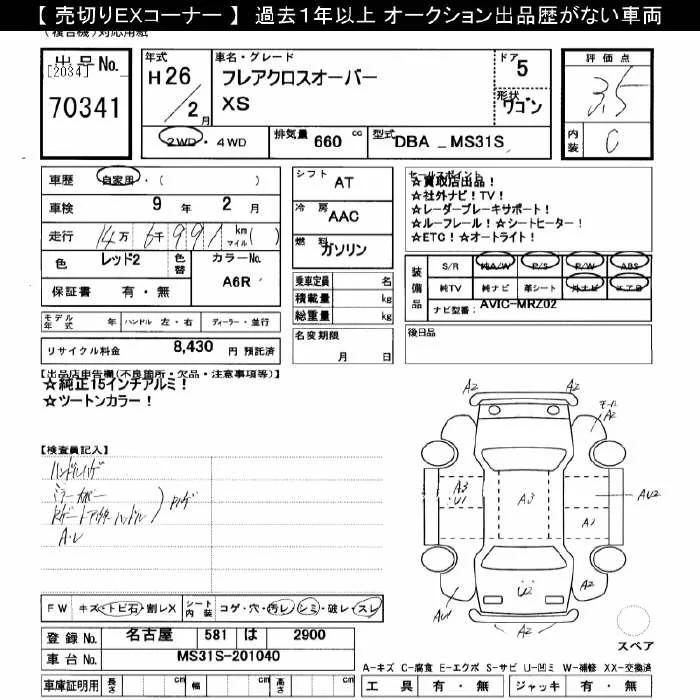 【 売切りEXコーナー 】 過去１年以上 オークション出品歴がない車両
(複合機)対応用紙
出品No.
[2034]
70341
年式
H26
／2月
車名・グレード
フレアクロスオーバー
XS
ドア
5
形状
ワゴン
評価点
3.5
内装
C
2WD・4WD
排気量 660 cc
型式 DBA _ MS31S
車歴 自家用・( )
車検 9年 2月
走行 14万 6千 991 km マイル ( )
色 レッド2 色替
カラーNo. A6R
保証書 有・無
シフト AT
冷房 AAC
燃料 ガソリン
乗車定員 名
積載量 kg
総重量 kg
セールスポイント
☆買取店出品！
☆社外ナビ！TV！
☆レーダーブレーキサポート！
☆ルーフレール！☆シートヒーター！
☆ETC！☆オートライト！
装備品
S/R 純A/W P/S P/W ABS
純TV 純ナビ 革シート 外ナビ エアB
ナビ型番： AVIC-MRZ02
モデル年式 年 ハンドル 左・右 ディーラー・並行
リサイクル料金 8,430 円 預託済
名変期限
月 日
後日品
【出品店申告欄(不良箇所・欠品・注意事項等)】
☆純正15インチアルミ！
☆ツートンカラー！
【検査員記入】
ハンドルハゲ
ミラーカバー
A・L
A2
A2
A2
A3
U1
A3
AU2
A1
U2
AU1
A2
FW キズ・トビ石・割レX
シート内装 コゲ・穴・汚レ・シミ・破レ・スレ
登録No. 名古屋 581 は 2900
車台No. MS31S-201040
車庫証明用 長さ cm 幅 cm 高さ cm
スペア
A-キズ C-腐食 E-エクボ S-サビ U-凹ミ W-補修 XX-交換済
工具 有・無 ジャッキ 有・無